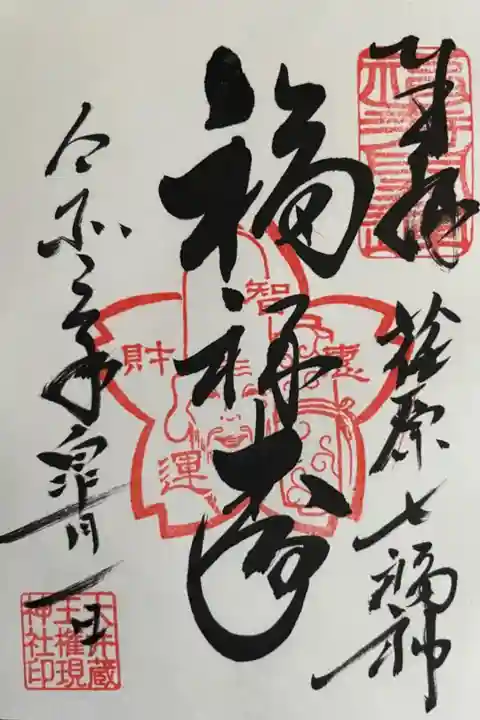 奉拝
荏原七福神
福禄寿
智惠
財運
令和三年皐月一日
大井蔵
王権現
神社印